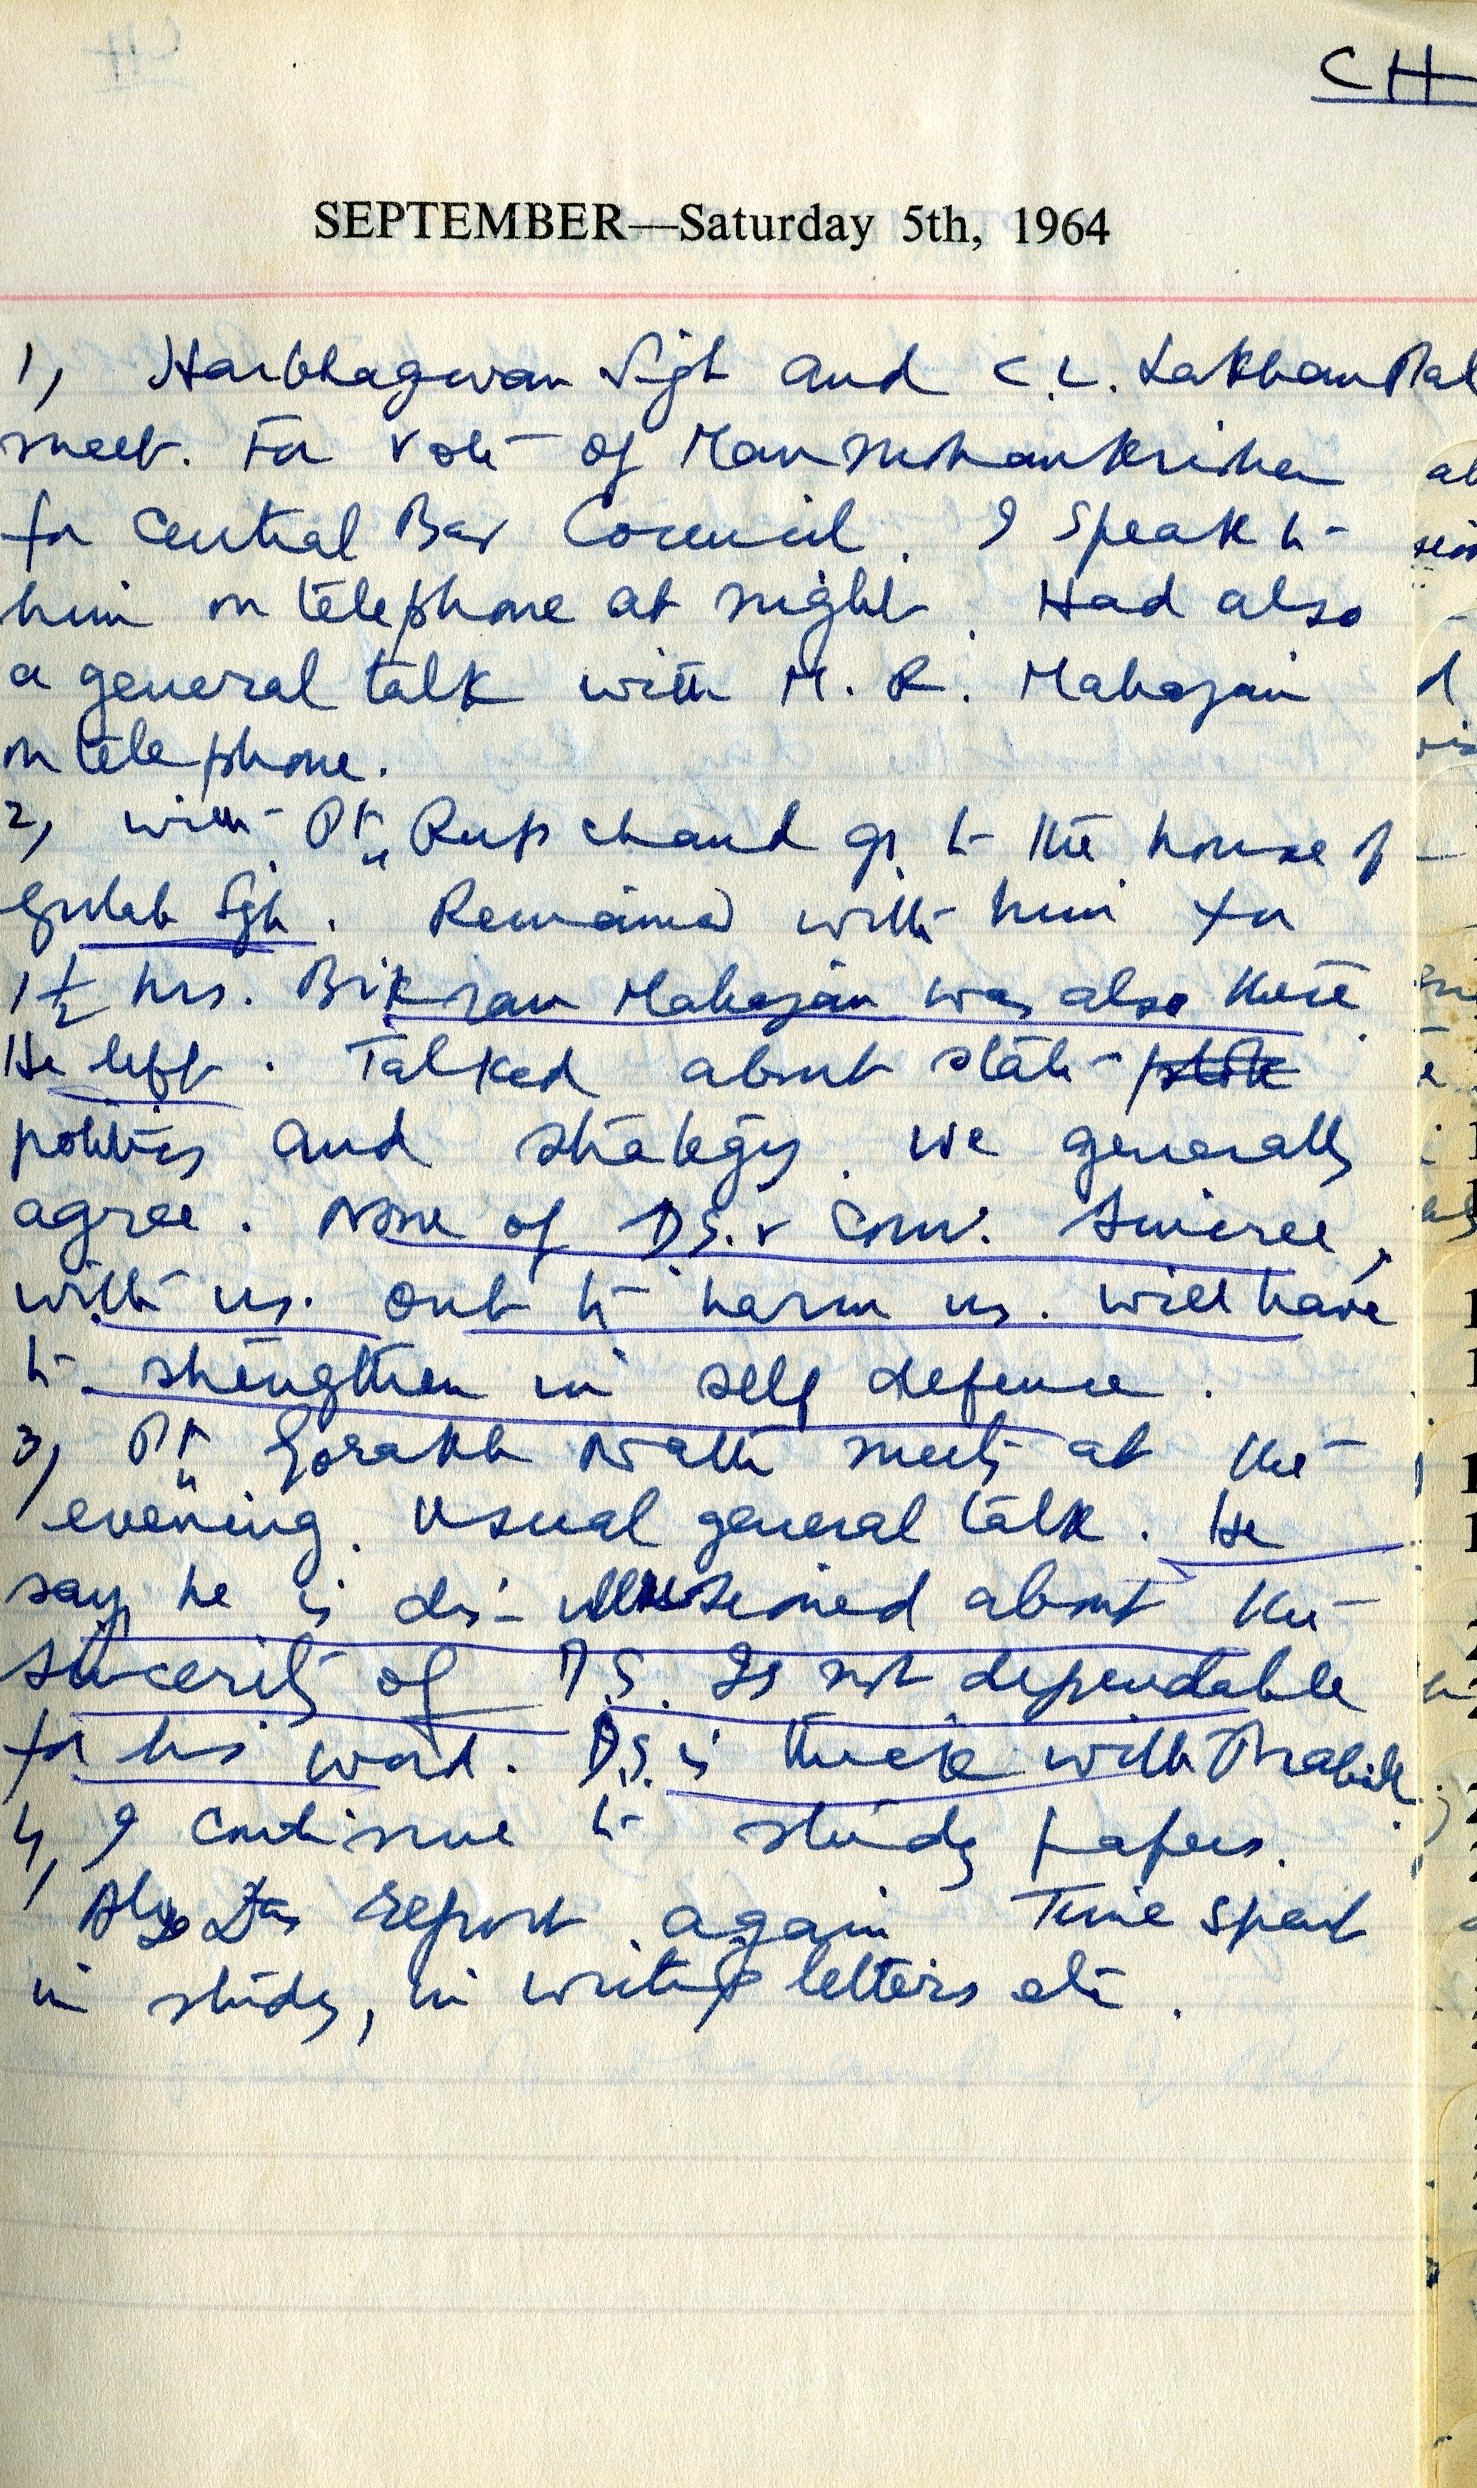 CH
SEPTEMBER—Saturday 5th, 1964
1, Harbhagwan Sigh and C.L. LakhanPal
meet. For vote of Manmohankrishen
for Central Bar Council. I speak to
him on telephone at night. Had also
a general talk with M. R. Mahajan
on telephone.
2, with Pt. Rup chand go to the house of
Gulab Sgh. Remained with him for
1 1/2 hrs. Bikram Mahajan was also there.
He left. Talked about state
politics and strategy. We generally
agree. None of D.S. & Com. Sincere,
with us. Out to harm us. Will have
to strengthen in self defence.
3, Pt. Gorakh Nath meets at the
evening. Usual general talk. He
says he is dis-illusioned about the
sincerity of D.S. Is not dependable
for his word. D.S. is thick with Prabodh.
4, I continue to study papers.
Das report again. Time spent
in study, in writing letters etc.